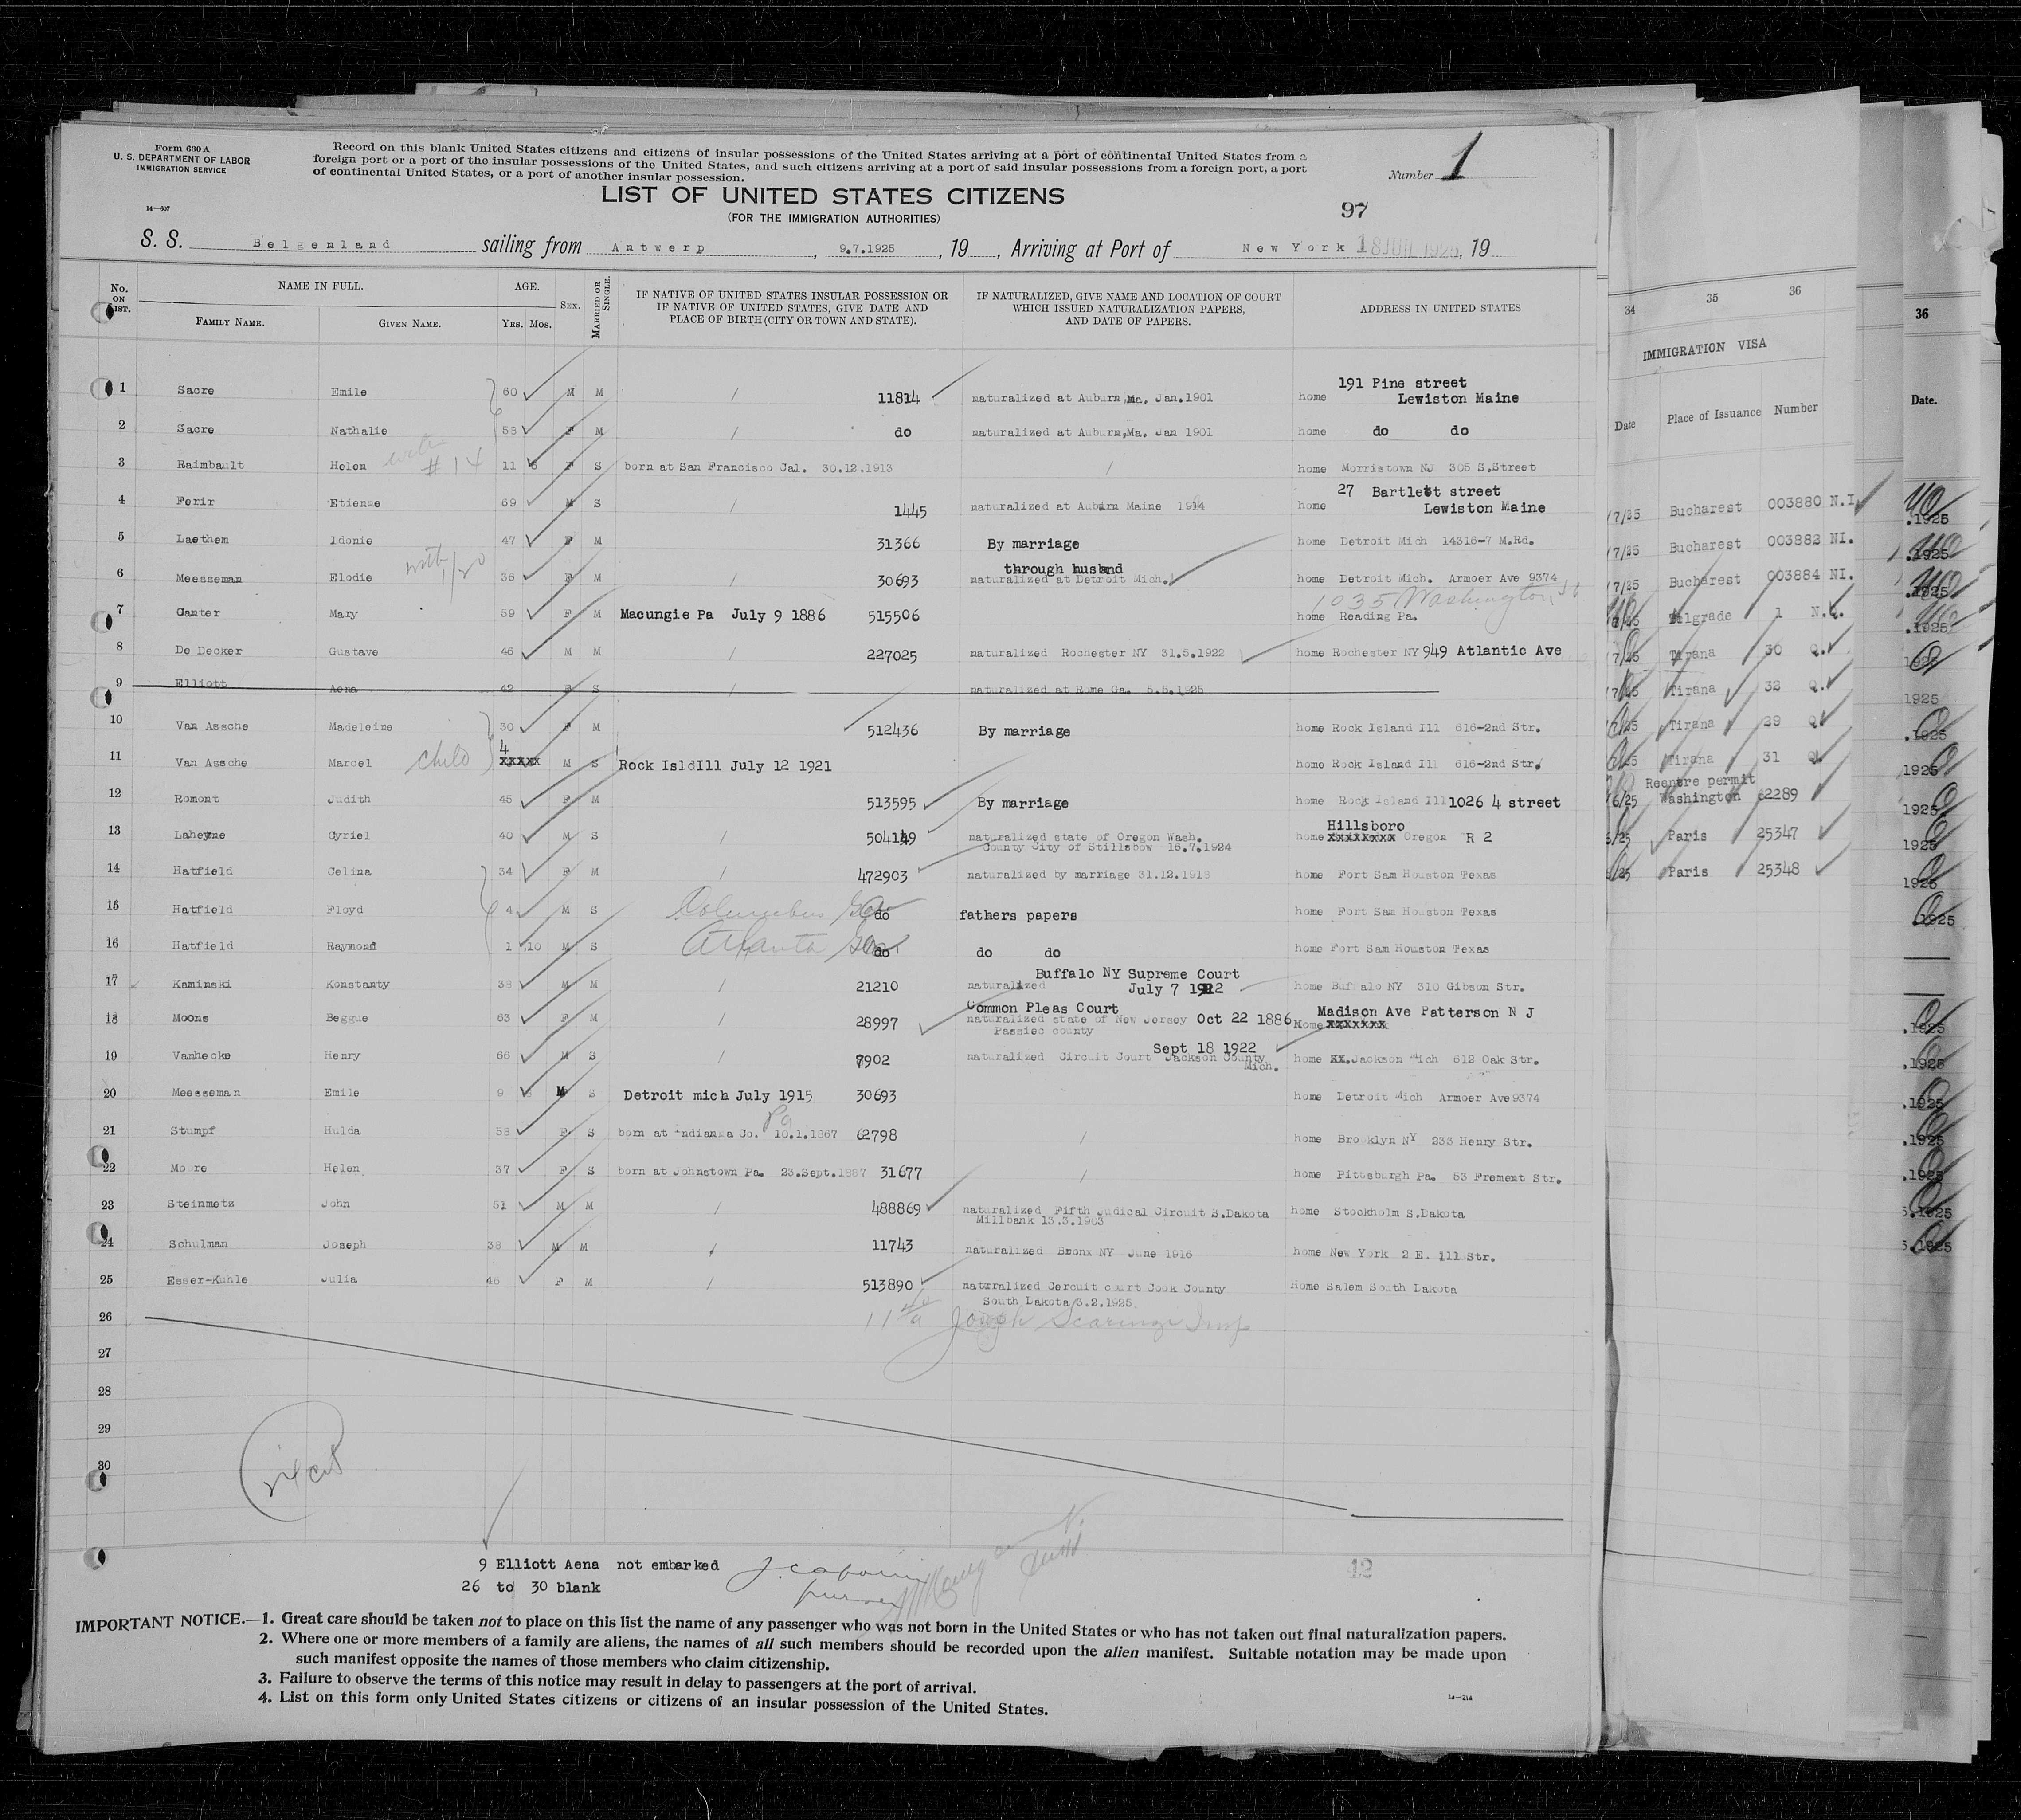 Form 630 A
U. S. DEPARTMENT OF LABOR
IMMIGRATION SERVICE
14—607
Record on this blank United States citizens and citizens of insular possessions of the United States arriving at a port of continental United States from a
foreign port or a port of the insular possessions of the United States, and such citizens arriving at a port of said insular possessions from a foreign port, a port
of continental United States, or a port of another insular possession.
Number 1
LIST OF UNITED STATES CITIZENS
(FOR THE IMMIGRATION AUTHORITIES)
97
S. S. Belgenland sailing from Antwerp, 9.7.1925, 19 , Arriving at Port of New York 18 JUL 1925, 19
No. ON LIST. NAME IN FULL. AGE. SEX. MARRIED OR SINGLE. IF NATIVE OF UNITED STATES INSULAR POSSESSION OR IF NATIVE OF UNITED STATES, GIVE DATE AND PLACE OF BIRTH (CITY OR TOWN AND STATE). IF NATURALIZED, GIVE NAME AND LOCATION OF COURT WHICH ISSUED NATURALIZATION PAPERS, AND DATE OF PAPERS. ADDRESS IN UNITED STATES
FAMILY NAME. GIVEN NAME. YRS. MOS.
1 Sacre Emile 60 M M / 11814 naturalized at Auburn, Ma. Jan.1901 home 191 Pine street Lewiston Maine
2 Sacre Nathalie 58 F M / do naturalized at Auburn, Ma. Jan 1901 home do do
3 Raimbault Helen # 14 11 6 F S born at San Francisco Cal. 30.12.1913 / home Morristown NJ 305 S.Street
4 Ferir Etienne 69 M S / 1445 naturalized at Auburn Maine 1914 home 27 Bartlett street Lewiston Maine
5 Laethem Idonie 47 F M 31366 By marriage home Detroit Mich 14316-7 M.Rd.
6 Meesseman Elodie with 1/20 36 F M / 30693 through husbnd naturalized at Detroit Mich. home Detroit Mich. Armoer Ave 9374
7 Ganter Mary 59 F M Macungie Pa July 9 1886 515506 home Reading Pa. 1035 Washington St
8 De Decker Gustave 46 M M / 227025 naturalized Rochester NY 31.5.1922 home Rochester NY 949 Atlantic Ave
9 Elliott Aena 42 F S / naturalized at Rome Ga. 5.5.1925
10 Van Assche Madeleine 30 F M 512436 By marriage home Rock Island Ill 616-2nd Str.
11 Van Assche Marcel child 4 xxxxx M S Rock IsldIll July 12 1921 home Rock Island Ill 616-2nd Str.
12 Romont Judith 45 F M 513595 By marriage home Rock Island Ill 1026 4 street
13 Laheyne Cyriel 40 M S / 504149 naturalized state of Oregon Wash. County City of Stillsbow 16.7.1924 home Hillsboro xxxxxxxx Oregon R 2
14 Hatfield Celina 34 F M / 472903 naturalized by marriage 31.12.1918 home Fort Sam Houston Texas
15 Hatfield Floyd 4 M S Columbus Ga do fathers papers home Fort Sam Houston Texas
16 Hatfield Raymond 1 10 M S Atlanta Ga do do do home Fort Sam Houston Texas
17 Kaminski Konstanty 38 M M / 21210 Buffalo NY Supreme Court naturalized July 7 1922 home Buffalo NY 310 Gibson Str.
18 Moons Beggue 63 F M / 28997 Common Pleas Court naturalized state of New Jersey Oct 22 1886 Passiec county Home Madison Ave Patterson N J xxxxxxx
19 Vanhecke Henry 66 M S / 7902 Sept 18 1922 naturalized Circuit Court Jackson County Mich. home xx.Jackson Mich 612 Oak Str.
20 Meesseman Emile 9 M S Detroit mich July 1915 30693 home Detroit Mich Armoer Ave 9374
21 Stumpf Hulda 58 F S born at Indianna Co. Pa 10.1.1867 62798 / home Brooklyn NY 233 Henry Str.
22 Moore Helen 37 F S born at Johnstown Pa. 23.Sept.1887 31677 / home Pittsburgh Pa. 53 Fremont Str.
23 Steinmetz John 51 M M / 488869 naturalized Fifth Judical Circuit S.Dakota Millbank 13.3.1903 home Stockholm S.Dakota
24 Schulman Joseph 38 M M / 11743 naturalized Bronx NY June 1916 home New York 2 E. 111 Str.
25 Esser-Kuhle Julia 46 F M / 513890 naturralized Cercuit court Cook County South Dakota 3.2.1925 Home Salem South Dakota
26 Joseph Scaringe Insp
27
28
29
30
9 Elliott Aena not embarked
26 to 30 blank
purser
42
IMPORTANT NOTICE.—1. Great care should be taken not to place on this list the name of any passenger who was not born in the United States or who has not taken out final naturalization papers.
2. Where one or more members of a family are aliens, the names of all such members should be recorded upon the alien manifest. Suitable notation may be made upon
such manifest opposite the names of those members who claim citizenship.
3. Failure to observe the terms of this notice may result in delay to passengers at the port of arrival.
4. List on this form only United States citizens or citizens of an insular possession of the United States.
14—214
34 35 36
IMMIGRATION VISA
Date Place of Issuance Number
7/25 Bucharest 003880 N.I.
7/25 Bucharest 003882 NI.
7/25 Bucharest 003884 NI.
Belgrade 1 N.Q.
7/25 Tirana 30 Q.
7/25 Tirana 32 Q.
7/25 Tirana 29 Q
Tirana 31 Q
Reentre permit
6/25 Washington 62289
6/25 Paris 25347
Paris 25348
36
Date.
.1925
.1925
.1925
.1925
1925
1925
.1925
1925
1925
1925
1925
1925
.1925
.1925
.1925
.1925
.1925
5.1925
5.1925